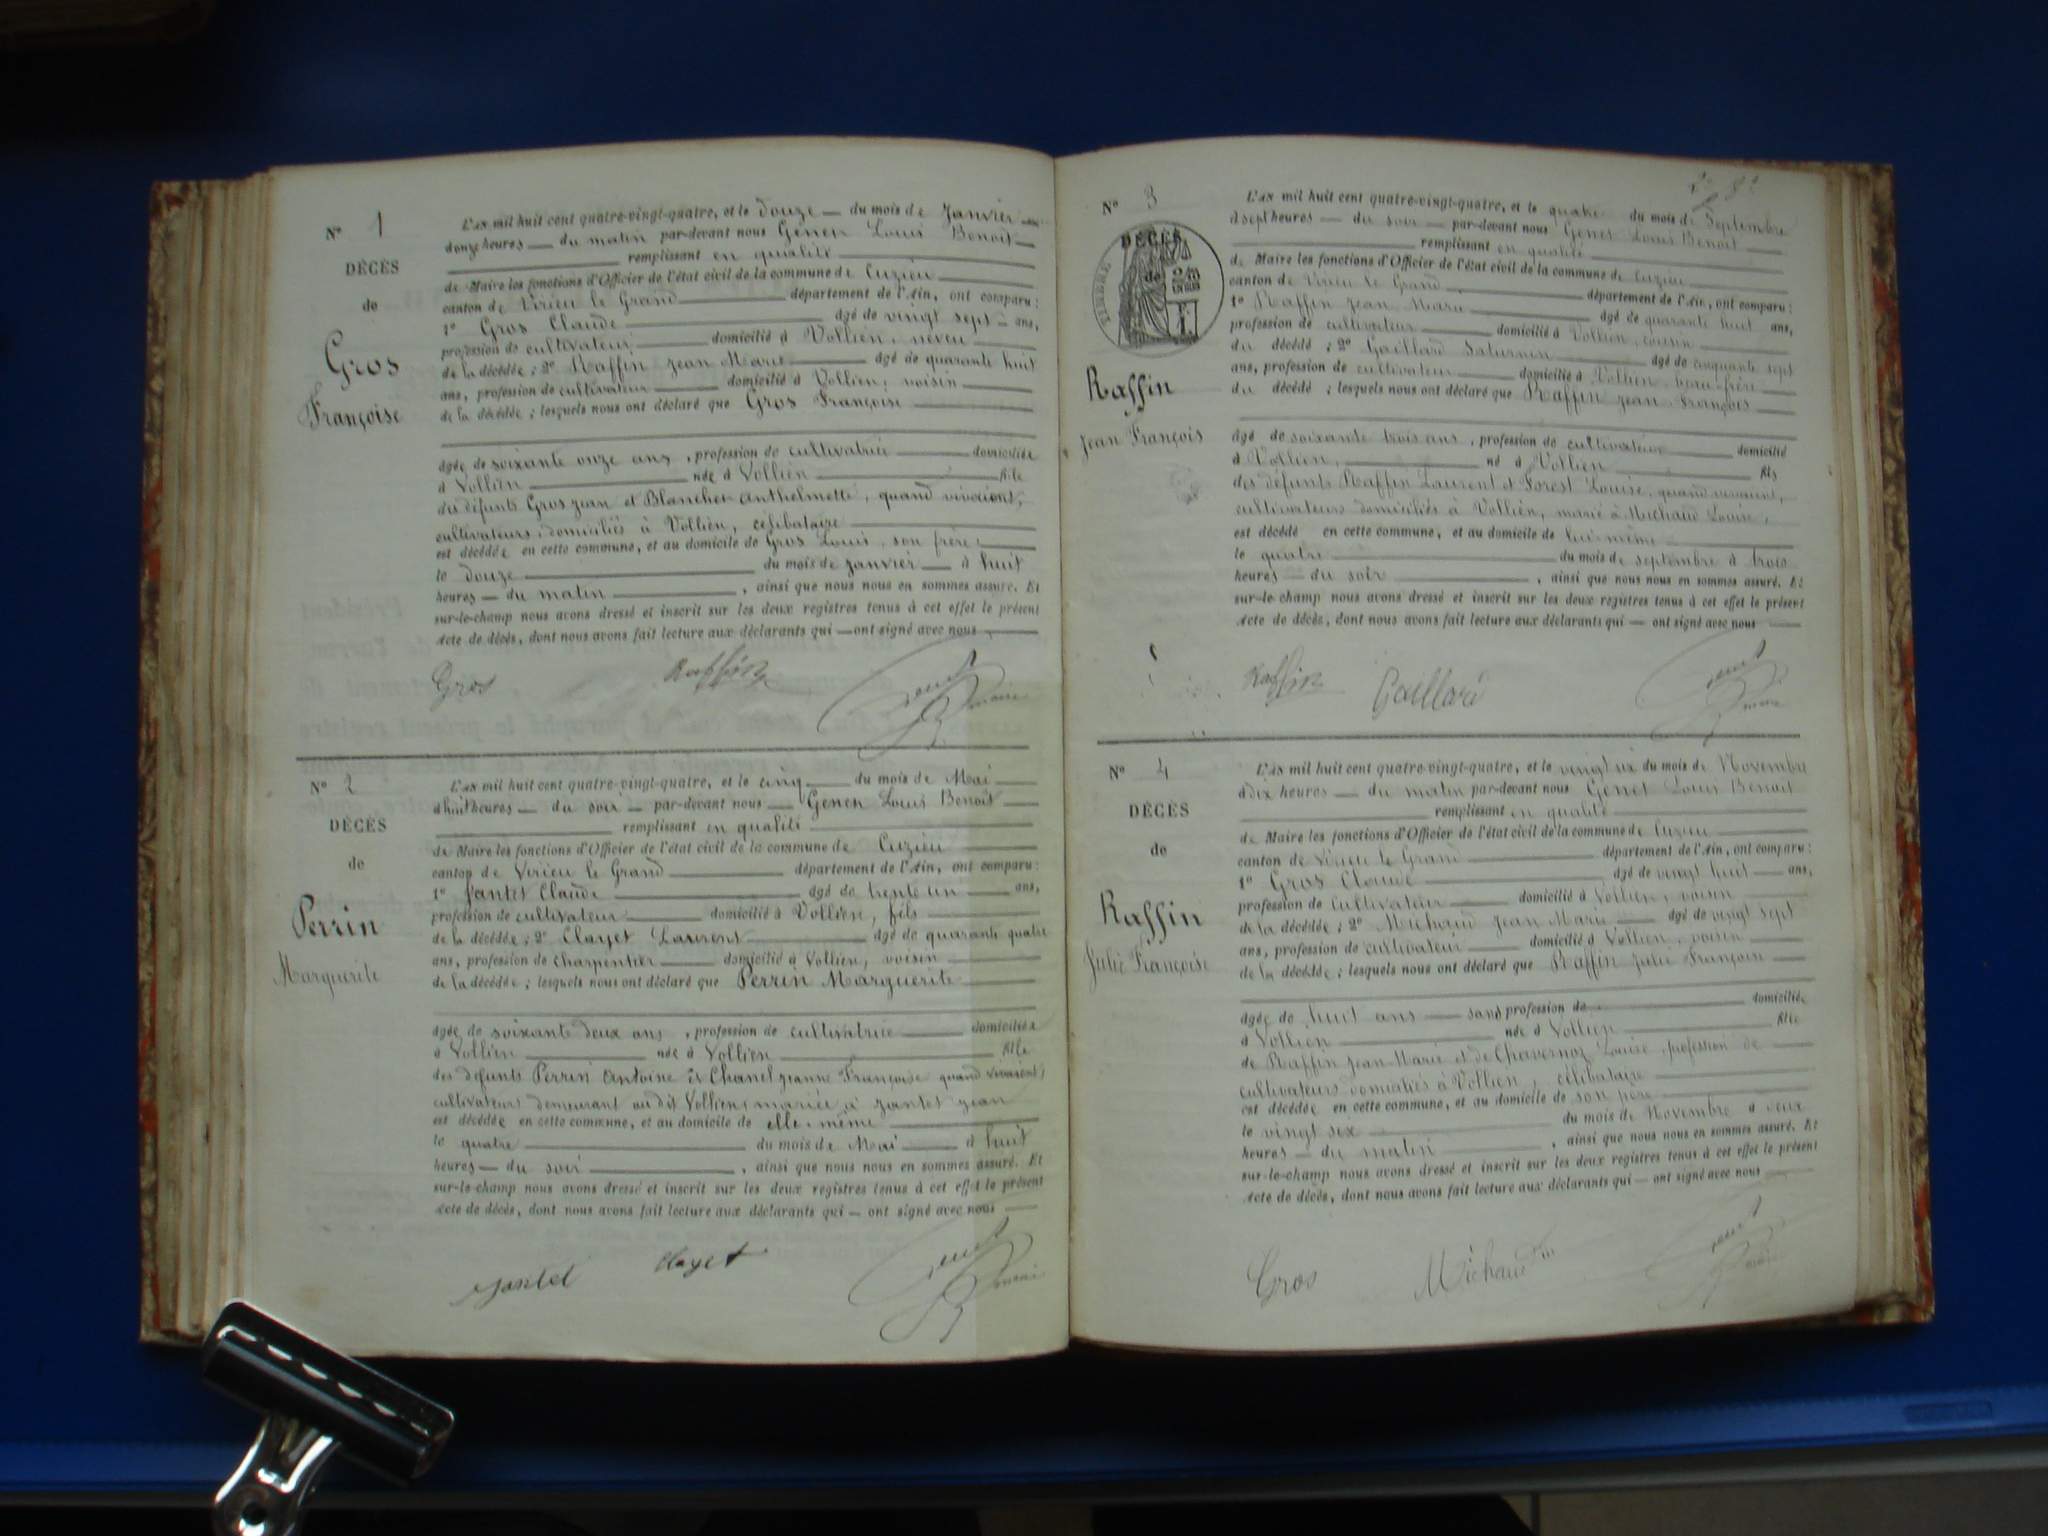 Nº 1
DÉCÈS
de
Gros
Françoise
L'an mil huit cent quatre-vingt-quatre, et le douze du mois de Janvier
donze heures du matin par-devant nous Genen Louis Benoit
remplissant en qualité
de Maire les fonctions d'Officier de l'état civil de la commune de Cuzieu
canton de Virieu le Grand département de l'Ain, ont comparu :
1º Gros Claude âgé de vingt sept ans,
profession de cultivateur domicilié à Vollien, neveu
de la décédée ; 2º Raffin Jean Marie âgé de quarante huit
ans, profession de cultivateur domicilié à Vollien, voisin
de la décédée ; lesquels nous ont déclaré que Gros Françoise
âgée de soixante onze ans, profession de cultivatrice domiciliée
à Vollien née à Vollien fille
des défunts Gros Jean et Blanchet Anthelmette, quand vivaient,
cultivateurs, domiciliés à Vollien, célibataire
est décédée en cette commune, et au domicile de Gros Louis, son frère
le douze du mois de Janvier à huit
heures du matin, ainsi que nous nous en sommes assuré. Et
sur-le-champ nous avons dressé et inscrit sur les deux registres tenus à cet effet le présent
Acte de décès, dont nous avons fait lecture aux déclarants qui ont signé avec nous
Gros Raffin
maire
Nº 2
DÉCÈS
de
Perrin
Marguerite
L'an mil huit cent quatre-vingt-quatre, et le cinq du mois de Mai
à huit heures du soir par-devant nous Genen Louis Benoit
remplissant en qualité
de Maire les fonctions d'Officier de l'état civil de la commune de Cuzieu
canton de Virieu le Grand département de l'Ain, ont comparu :
1º Jantet Claude âgé de trente un ans,
profession de cultivateur domicilié à Vollien, fils
de la décédée ; 2º Clayet Laurent âgé de quarante quatre
ans, profession de charpentier domicilié à Vollien, voisin
de la décédée ; lesquels nous ont déclaré que Perrin Marguerite
âgée de soixante deux ans, profession de cultivatrice domiciliée
à Vollien née à Vollien fille
des défunts Perrin Antoine et Chanel Jeanne Françoise quand vivaient,
cultivateurs demeurant audit Vollien, mariée à Jantet Jean
est décédée en cette commune, et au domicile de elle-même
le quatre du mois de Mai à huit
heures du soir, ainsi que nous nous en sommes assuré. Et
sur-le-champ nous avons dressé et inscrit sur les deux registres tenus à cet effet le présent
Acte de décès, dont nous avons fait lecture aux déclarants qui ont signé avec nous
Jantet Clayet
maire
Nº 3
DÉCÈS
de
TIMBRE
Raffin
Jean François
L'an mil huit cent quatre-vingt-quatre, et le quatre du mois de Septembre
à sept heures du soir par-devant nous Genet Louis Benoit
remplissant en qualité
de Maire les fonctions d'Officier de l'état civil de la commune de Cuzieu
canton de Virieu le Grand département de l'Ain, ont comparu :
1º Raffin Jean Marie âgé de quarante huit ans,
profession de cultivateur domicilié à Vollien, cousin
du décédé ; 2º Gaillard Saturnin âgé de cinquante sept
ans, profession de cultivateur domicilié à Vollien, beau-frère
du décédé ; lesquels nous ont déclaré que Raffin Jean François
âgé de soixante trois ans, profession de cultivateur domicilié
à Vollien, né à Vollien fils
des défunts Raffin Laurent et Forest Louise, quand vivaient,
cultivateurs domiciliés à Vollien, marié à Michaud Louise,
est décédé en cette commune, et au domicile de lui-même
le quatre du mois de septembre à trois
heures du soir, ainsi que nous nous en sommes assuré. Et
sur-le-champ nous avons dressé et inscrit sur les deux registres tenus à cet effet le présent
Acte de décès, dont nous avons fait lecture aux déclarants qui ont signé avec nous
Raffin Gaillard
maire
Nº 4
DÉCÈS
de
Raffin
Julie Françoise
L'an mil huit cent quatre-vingt-quatre, et le vingt six du mois de Novembre
à dix heures du matin par-devant nous Genet Louis Benoit
remplissant en qualité
de Maire les fonctions d'Officier de l'état civil de la commune de Cuzieu
canton de Virieu le Grand département de l'Ain, ont comparu :
1º Gros Claude âgé de vingt huit ans,
profession de cultivateur domicilié à Vollien, voisin
de la décédée ; 2º Michaud Jean Marie âgé de vingt sept
ans, profession de cultivateur domicilié à Vollien, voisin
de la décédée ; lesquels nous ont déclaré que Raffin Julie Françoise
âgée de huit ans sans profession de domiciliée
à Vollien née à Vollien fille
de Raffin Jean Marie et de Chavernoz Louise, profession de
cultivateurs domiciliés à Vollien, célibataire
est décédée en cette commune, et au domicile de son père
le vingt six du mois de Novembre à deux
heures du matin, ainsi que nous nous en sommes assuré. Et
sur-le-champ nous avons dressé et inscrit sur les deux registres tenus à cet effet le présent
Acte de décès, dont nous avons fait lecture aux déclarants qui ont signé avec nous
Gros Michaud